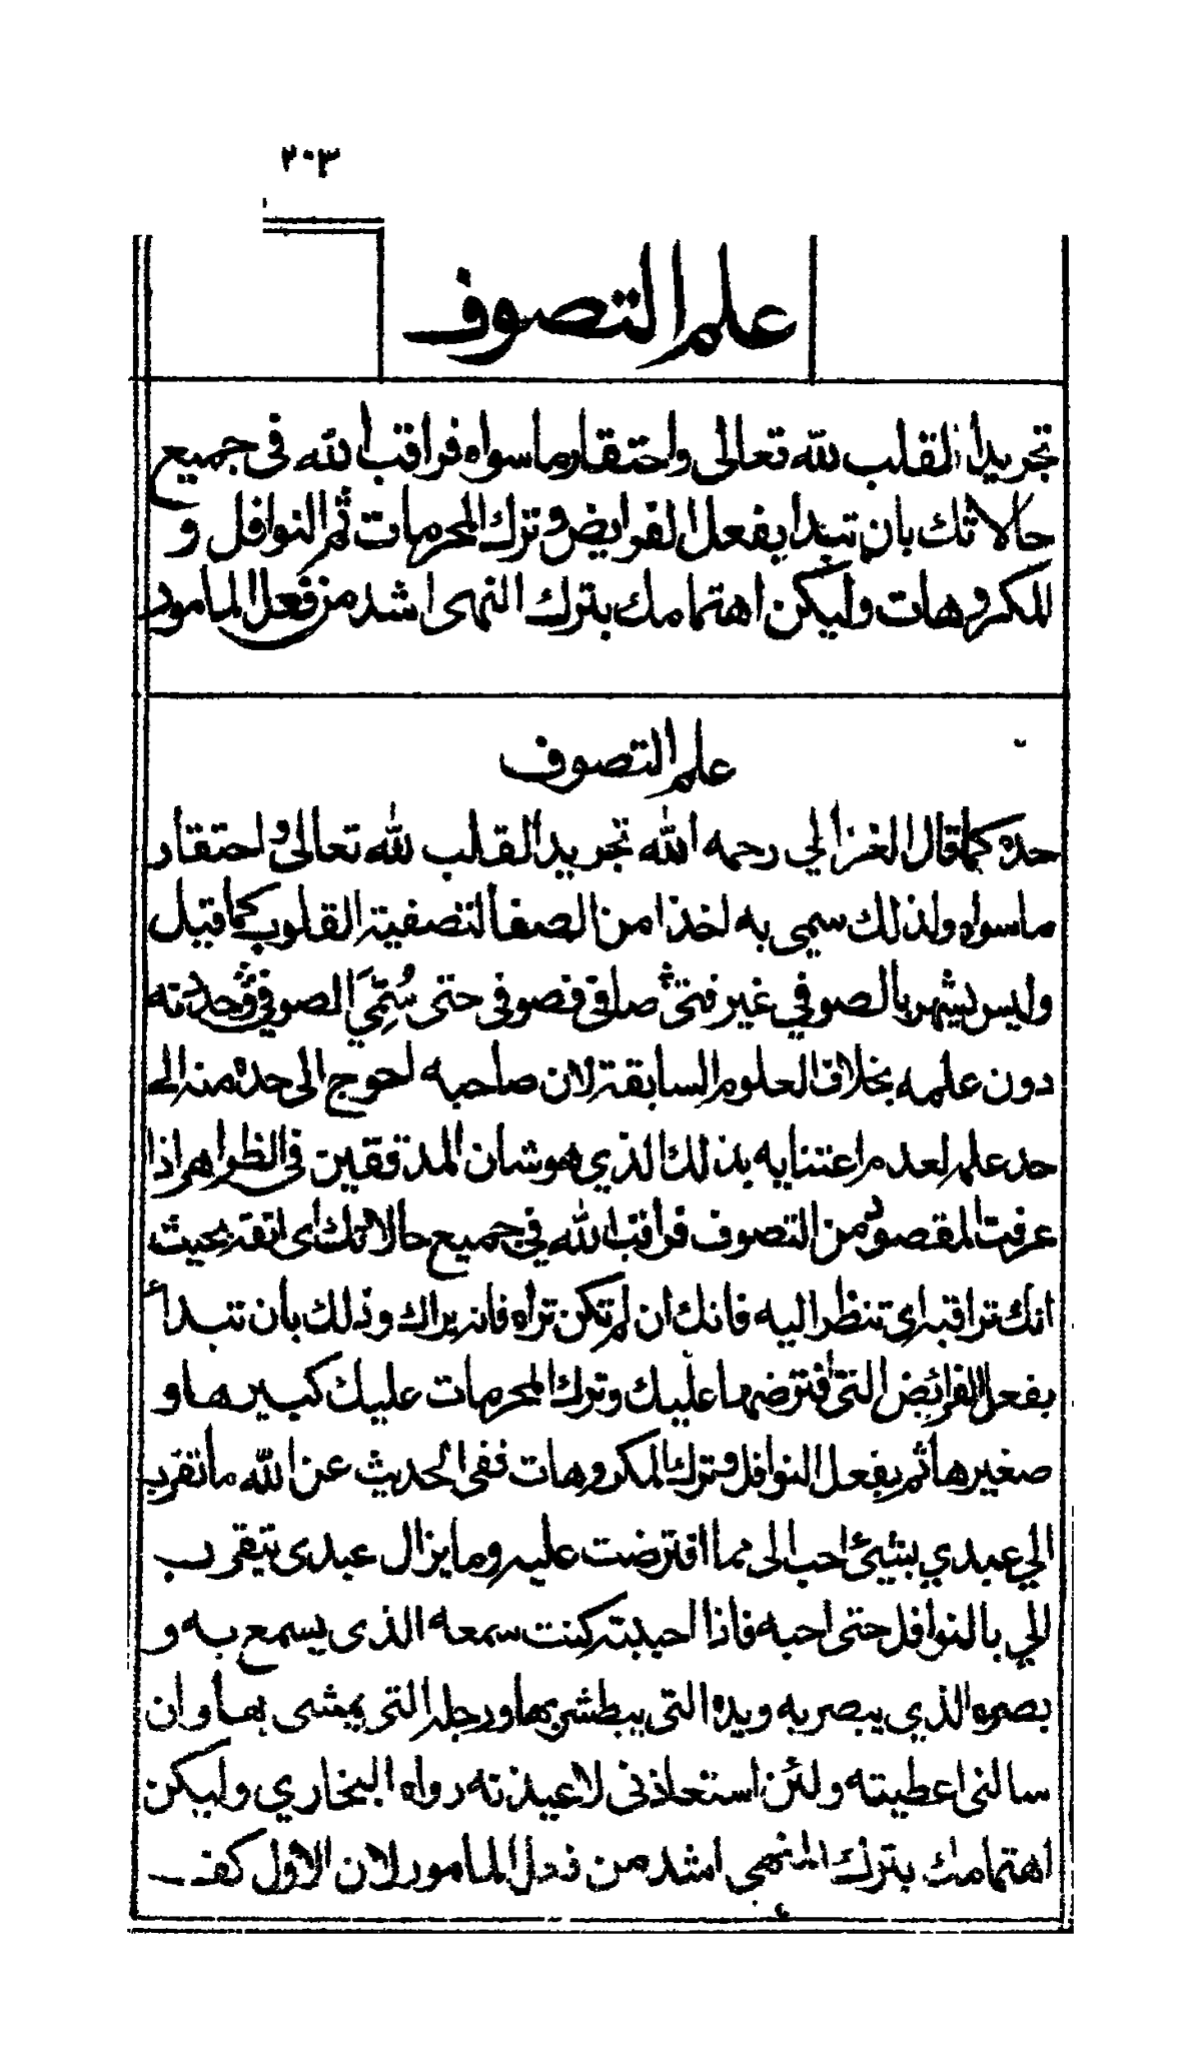 ٢٠٣
علم التصوف
تجريد القلب لله تعالى واحتقار ما سواه فراقب الله فى جميع
حالاتك بان تبدا بفعل الفرايض وترك المحرمات ثم النوافل و
المكروهات وليكن اهتمامك بترك النهى اشد من فعل المامور
علم التصوف
حده كما قال الغزالي رحمه الله تجريد القلب لله تعالى واحتقار
ما سواه ولذلك سمى به اخذا من الصفا لتصفية القلوب كما قيل
وليس يشهر بالصوفي غير فتى صافى فصوفى حتى سُمِّيَ الصوفي وحددته
دون علمه بخلاف العلوم السابقة لان صاحبه احوج الى حده منه الى
حد علم لعدم اعتنايه بذلك الذي هو شان المدققين فى الظواهر اذا
عرفت المقصود من التصوف فراقب الله في جميع حالاتك اى اتقه بحيث
انك تراقبه اي تنظر اليه فانك ان لم تكن تراه فانه يراك وذلك بان تبدأ
بفعل الفرائض التى افترضها عليك وترك المحرمات عليك كبيرها و
صغيرها ثم بفعل النوافل وترك المكروهات ففى الحديث عن الله ما تقرب
الي عبدي بشيئ احب الى مما افترضت عليه وما يزال عبدى يتقرب
الي بالنوافل حتى احبه فاذا احببته كنت سمعه الذى يسمع به و
بصره الذي يبصر به ويده التى يبطش بها ورجله التى يمشى بها وان
سالنى اعطيته ولئن استعاذنى لاعيذنه رواه البخاري وليكن
اهتمامك بترك المنهى اشد من فعل المامور لان الاول كف